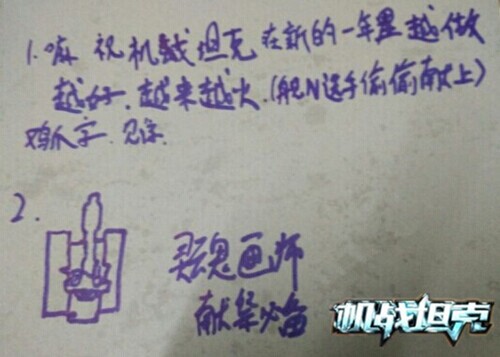 1. 嘛 祝机战坦克 在新的一年里越做
越好. 越来越火. (舰N选手偷偷献上)
鸡爪字. 见谅.
2.
灵魂画师
献祭必备
机战坦克